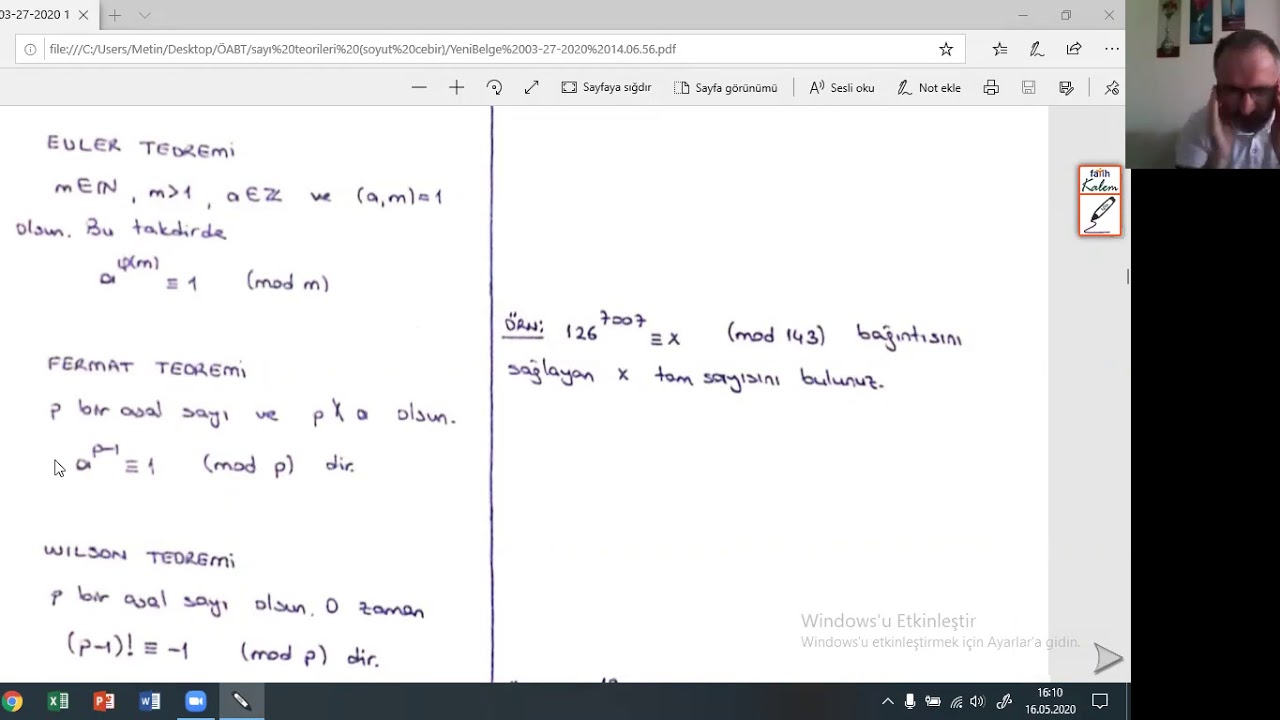 03-27-2020 1
file:///C:/Users/Metin/Desktop/ÖABT/sayı%20teorileri%20(soyut%20cebir)/YeniBelge%2003-27-2020%2014.06.56.pdf
Sayfaya sığdır
Sayfa görünümü
Sesli oku
Not ekle
EULER TEOREMİ
m∈ℕ, m>1, a∈ℤ ve (a,m)=1
olsun. Bu takdirde
a^φ(m) ≡ 1 (mod m)
FERMAT TEOREMİ
p bir asal sayı ve p∤a olsun.
a^p-1 ≡ 1 (mod p) dir.
WILSON TEOREMİ
p bir asal sayı olsun. O zaman
(p-1)! ≡ -1 (mod p) dir.
ÖRN: 126^7007 ≡ x (mod 143) bağıntısını
sağlayan x tam sayısını bulunuz.
fatih
Kalem
Windows'u Etkinleştir
Windows'u etkinleştirmek için Ayarlar'a gidin.
16:10
16.05.2020